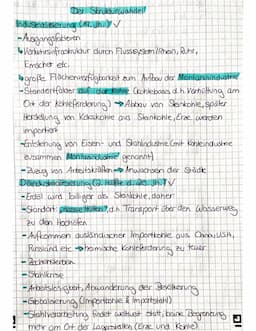 Der Strukturwandel
Industrialisierung (19. Jh.) ✓
- Ausgangsfaktoren
↳ Verkehrsinfrastruktur durch Flusssystem (Rhein, Ruhr,
Emscher etc.
↳ große Flächenverfügbarkeit zum Aufbau der Montanindustrie
- Standortfaktor auf der Kohle (Kohlebasis, d.h. Verhüttung am
Ort der Kohleförderung) → Abbau von Steinkohle, später
Herstellung von Kokskohle aus Steinkohle, Erze werden
importiert
- Entstehung von Eisen- und Stahlindustrie (mit Kohleindustrie
zusammen Montanindustrie genannt)
- Zuzug von Arbeitskräften → Anwachsen der Städte
Deindustrialisierung (2. Hälfte d. 20. Jh.) ✓
- Erdöl wird billiger als Steinkohle, daher:
- Standort "nasse Hütten", d.h. Transport über den Wasserweg
zu den Hochöfen
- Aufkommen ausländischer Importkohle aus China, USA,
Russland etc → heimische Kohleförderung zu teuer
- Zechensterben
- Stahlkrise
- Arbeitslosigkeit, Abwanderung der Bevölkerung
- Globalisierung (Importkohle & Importstahl)
- Stahlverarbeitung findet weltweit statt, keine Begrenzung
mehr am Ort der Lagerstätten (Erz und Kohle)